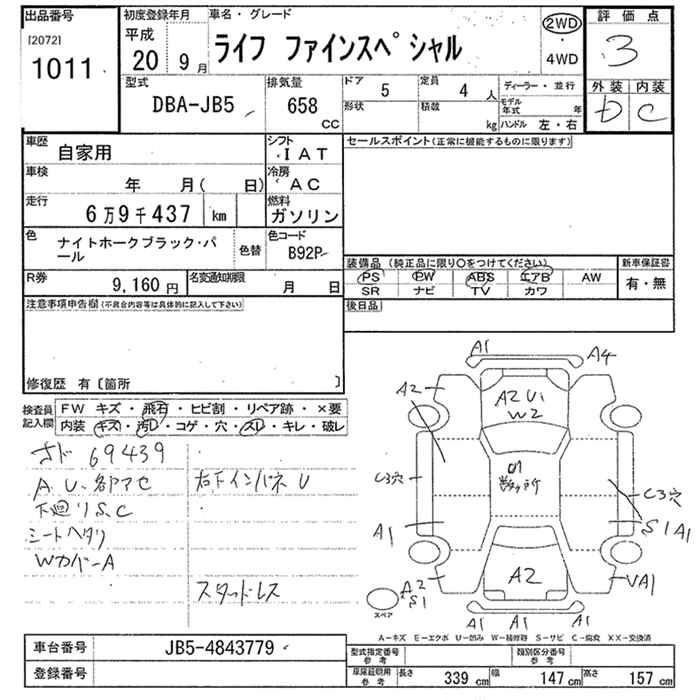 出品番号
[2072]
1011
初度登録年月
平成
20 9月
車名・グレード
ライフ ファインスペシャル
2WD
・
4WD
評価点
3
外装 内装
D C
型式
DBA-JB5
排気量
658
CC
ドア
5
定員
4 人
形状
積載
kg
ディーラー・並行
モデル年式 年
ハンドル 左・右
車歴
自家用
シフト
IAT
車検
年 月( 日)
冷房
AC
走行
6万9千437 km
燃料
ガソリン
色
ナイトホークブラック・パール
色替
色コード
B92P
R券
9,160 円
名変通知期限
月 日
セールスポイント(正常に機能するものに限ります)
装備品 (純正品に限り○をつけてください)
PS PW ABS エアB AW
SR ナビ TV カワ
新車保証書
有・無
後日品
注意事項申告欄(不具合内容等は具体的に記入して下さい)
修復歴 有〔箇所 〕
検査員記入欄
FW キズ・飛石・ヒビ割・リペア跡・×要
内装 キズ・汚レ・コゲ・穴・スレ・キレ・破レ
69439
A.U.各部アセ
右下インパネU
下廻りS.C
シートヘタリ
WカバーA
スタッドレス
A1
A4
A2
A2 U1
W2
C3穴
C3穴
A1
S1A1
A2
S1
A2
VA1
A1 A1 A1
スペア
A−キズ E−エクボ U−凹み W−補修跡 S−サビ C−腐食 XX−交換済
車台番号
JB5-4843779
登録番号
型式指定番号
参考
類別区分番号
参考
車庫証明用
参考
長さ 339 cm
幅 147 cm
高さ 157 cm